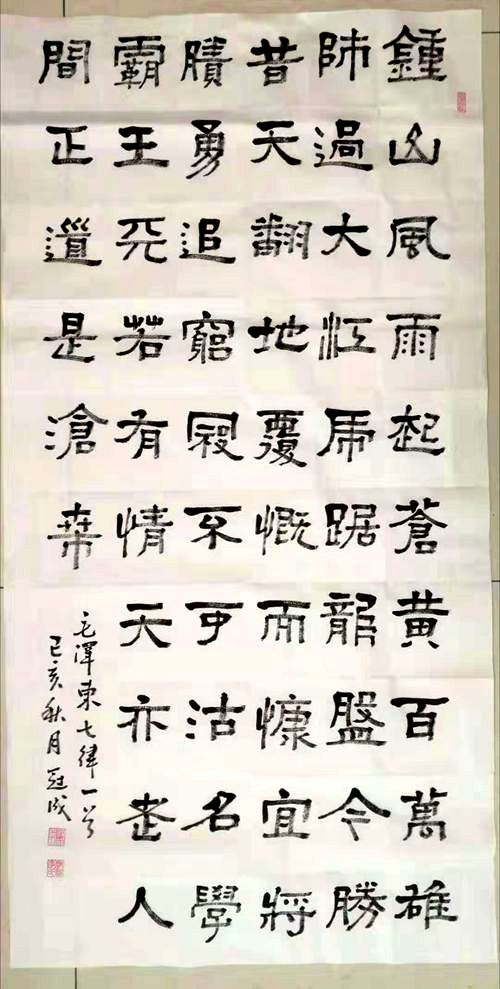 鍾山風雨起蒼黃百萬雄
師過大江虎踞龍盤今勝
昔天翻地覆慨而慷宜將
賸勇追窮寇不可沽名學
霸王天若有情天亦老人
間正道是滄桑
毛澤東七律一首
己亥秋月冠成